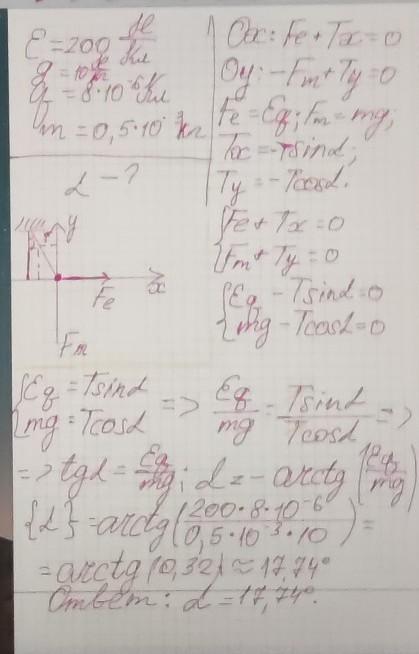 E = 200 Н/Кл
g = 10 Н/кг
q = 8·10⁻⁶ Кл
m = 0,5·10⁻³ кг
α – ?
y
x
Fe
Fm
Ox: Fe + Tx = 0
Oy: -Fm + Ty = 0
Fe = Eq; Fm = mg;
Tx = -Tsinα;
Ty = -Tcosα.
{Fe + Tx = 0
{Fm + Ty = 0
{Eq - Tsinα = 0
{mg - Tcosα = 0
{Eq = Tsinα
{mg = Tcosα => Eq/mg = Tsinα/Tcosα =>
=> tgα = Eq/mg; α = - arctg (Eq/mg)
{α} = arctg(200·8·10⁻⁶/0,5·10⁻³·10) =
= arctg(0,32) ≈ 17,74°
Ответ: α = 17,74°.